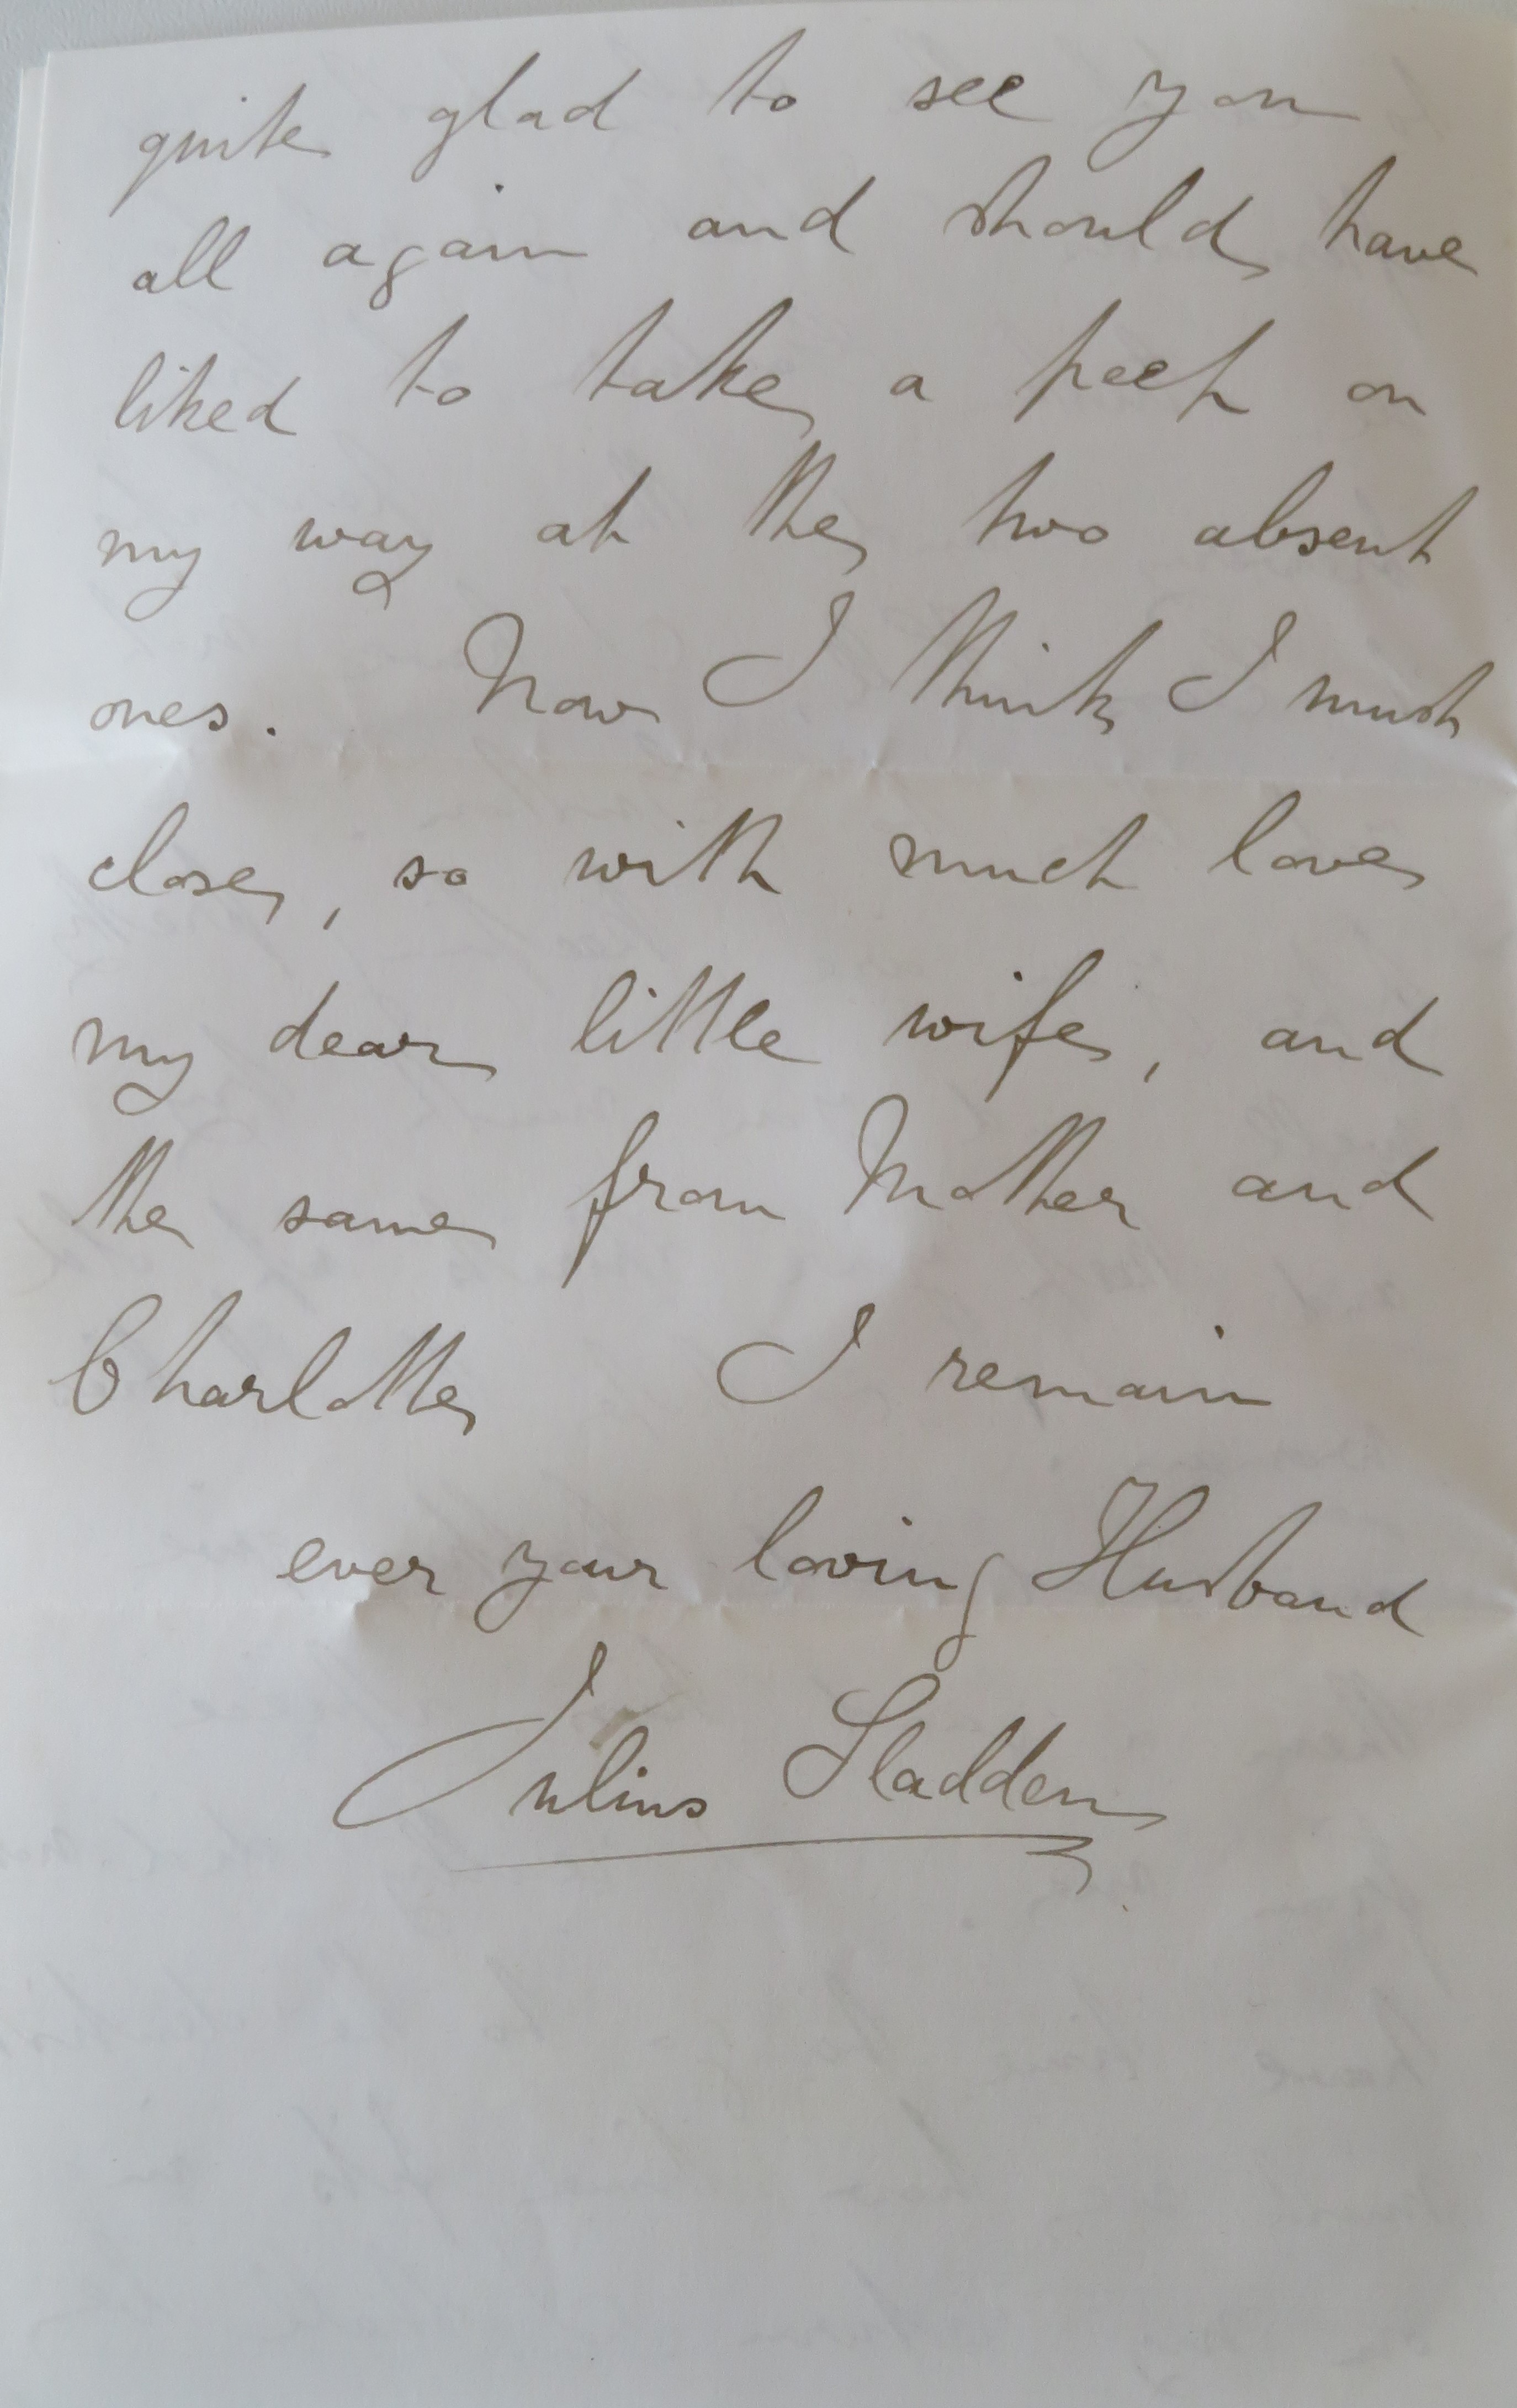 quite glad to see you
all again and should have
liked to take a peep on
my way at the two absent
ones. Now I think I must
close, so with much love
my dear little wife, and
the same from Mother and
Charlotte I remain
ever your loving Husband
Julius Sladden